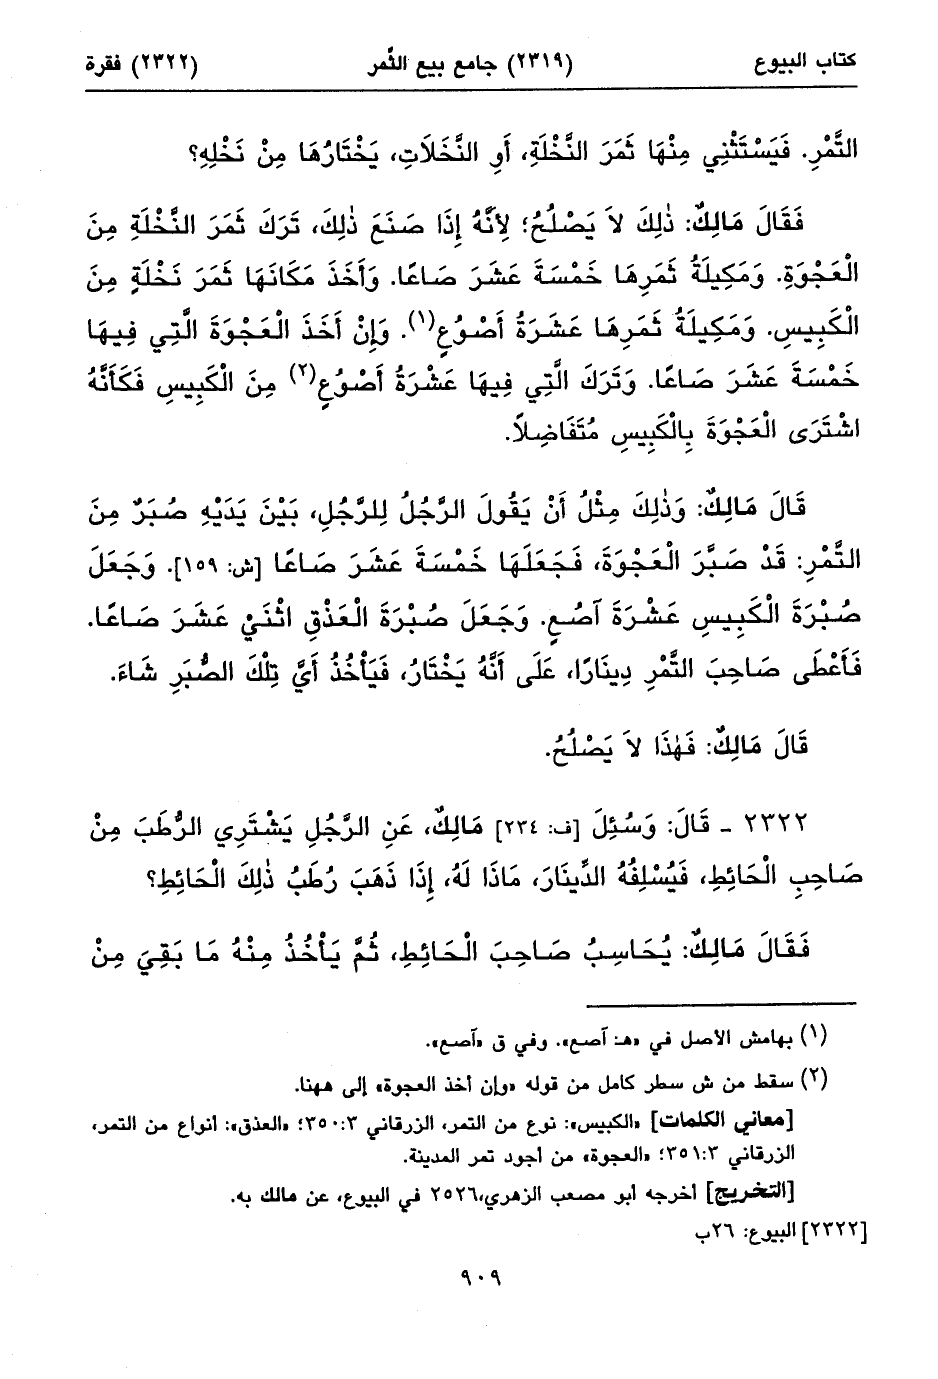 كتاب البيوع (٢٣١٩) جامع بيع الثَّمر (٢٣٢٢) فقرة
التَّمْرِ. فَيَسْتَثْنِي مِنْهَا ثَمَرَ النَّخْلَةِ، أَوِ النَّخَلَاتِ، يَخْتَارُهَا مِنْ نَخْلِهِ؟
فَقَالَ مَالِكٌ: ذٰلِكَ لاَ يَصْلُحُ؛ لِأَنَّهُ إِذَا صَنَعَ ذٰلِكَ، تَرَكَ ثَمَرَ النَّخْلَةِ مِنَ
الْعَجْوَةِ. وَمَكِيلَةُ ثَمَرِهَا خَمْسَةَ عَشَرَ صَاعًا. وَأَخَذَ مَكَانَهَا ثَمَرَ نَخْلَةٍ مِنَ
الْكَبِيسِ. وَمَكِيلَةُ ثَمَرِهَا عَشَرَةُ أَصْوُعٍ(١). وَإِنْ أَخَذَ الْعَجْوَةَ الَّتِي فِيهَا
خَمْسَةَ عَشَرَ صَاعًا. وَتَرَكَ الَّتِي فِيهَا عَشْرَةُ أَصْوُعٍ(٢) مِنَ الْكَبِيسِ فَكَأَنَّهُ
اشْتَرَى الْعَجْوَةَ بِالْكَبِيسِ مُتَفَاضِلاً.
قَالَ مَالِكٌ: وَذٰلِكَ مِثْلُ أَنْ يَقُولَ الرَّجُلُ لِلرَّجُلِ، بَيْنَ يَدَيْهِ صُبَرٌ مِنَ
التَّمْرِ: قَدْ صَبَّرَ الْعَجْوَةَ، فَجَعَلَهَا خَمْسَةَ عَشَرَ صَاعًا [ش: ١٥٩]. وَجَعَلَ
صُبْرَةَ الْكَبِيسِ عَشْرَةَ آصُعٍ. وَجَعَلَ صُبْرَةَ الْعَذْقِ اثْنَيْ عَشَرَ صَاعًا.
فَأَعْطَى صَاحِبَ التَّمْرِ دِينَارًا، عَلَى أَنَّهُ يَخْتَارُ، فَيَأْخُذُ أَيَّ تِلْكَ الصُّبَرِ شَاءَ.
قَالَ مَالِكٌ: فَهٰذَا لاَ يَصْلُحُ.
٢٣٢٢ - قَالَ: وَسُئِلَ [ف: ٢٣٤] مَالِكٌ، عَنِ الرَّجُلِ يَشْتَرِي الرُّطَبَ مِنْ
صَاحِبِ الْحَائِطِ، فَيُسْلِفُهُ الدِّينَارَ، مَاذَا لَهُ، إِذَا ذَهَبَ رُطَبُ ذٰلِكَ الْحَائِطِ؟
فَقَالَ مَالِكٌ: يُحَاسِبُ صَاحِبَ الْحَائِطِ، ثُمَّ يَأْخُذُ مِنْهُ مَا بَقِيَ مِنْ
(١) بهامش الأصل في «هـ: آصع». وفي ق «آصع».
(٢) سقط من ش سطر كامل من قوله «وإن أخذ العجوة» إلى ههنا.
[معاني الكلمات] «الكبيس»: نوع من التمر، الزرقاني ٣:٣٥٠؛ «العذق»: أنواع من التمر،
الزرقاني ٣:٣٥١؛ «العجوة» من أجود تمر المدينة.
[التخريج] أخرجه أبو مصعب الزهري،٢٥٢٦ في البيوع، عن مالك به.
[٢٣٢٢] البيوع: ٢٦ب
٩٠٩